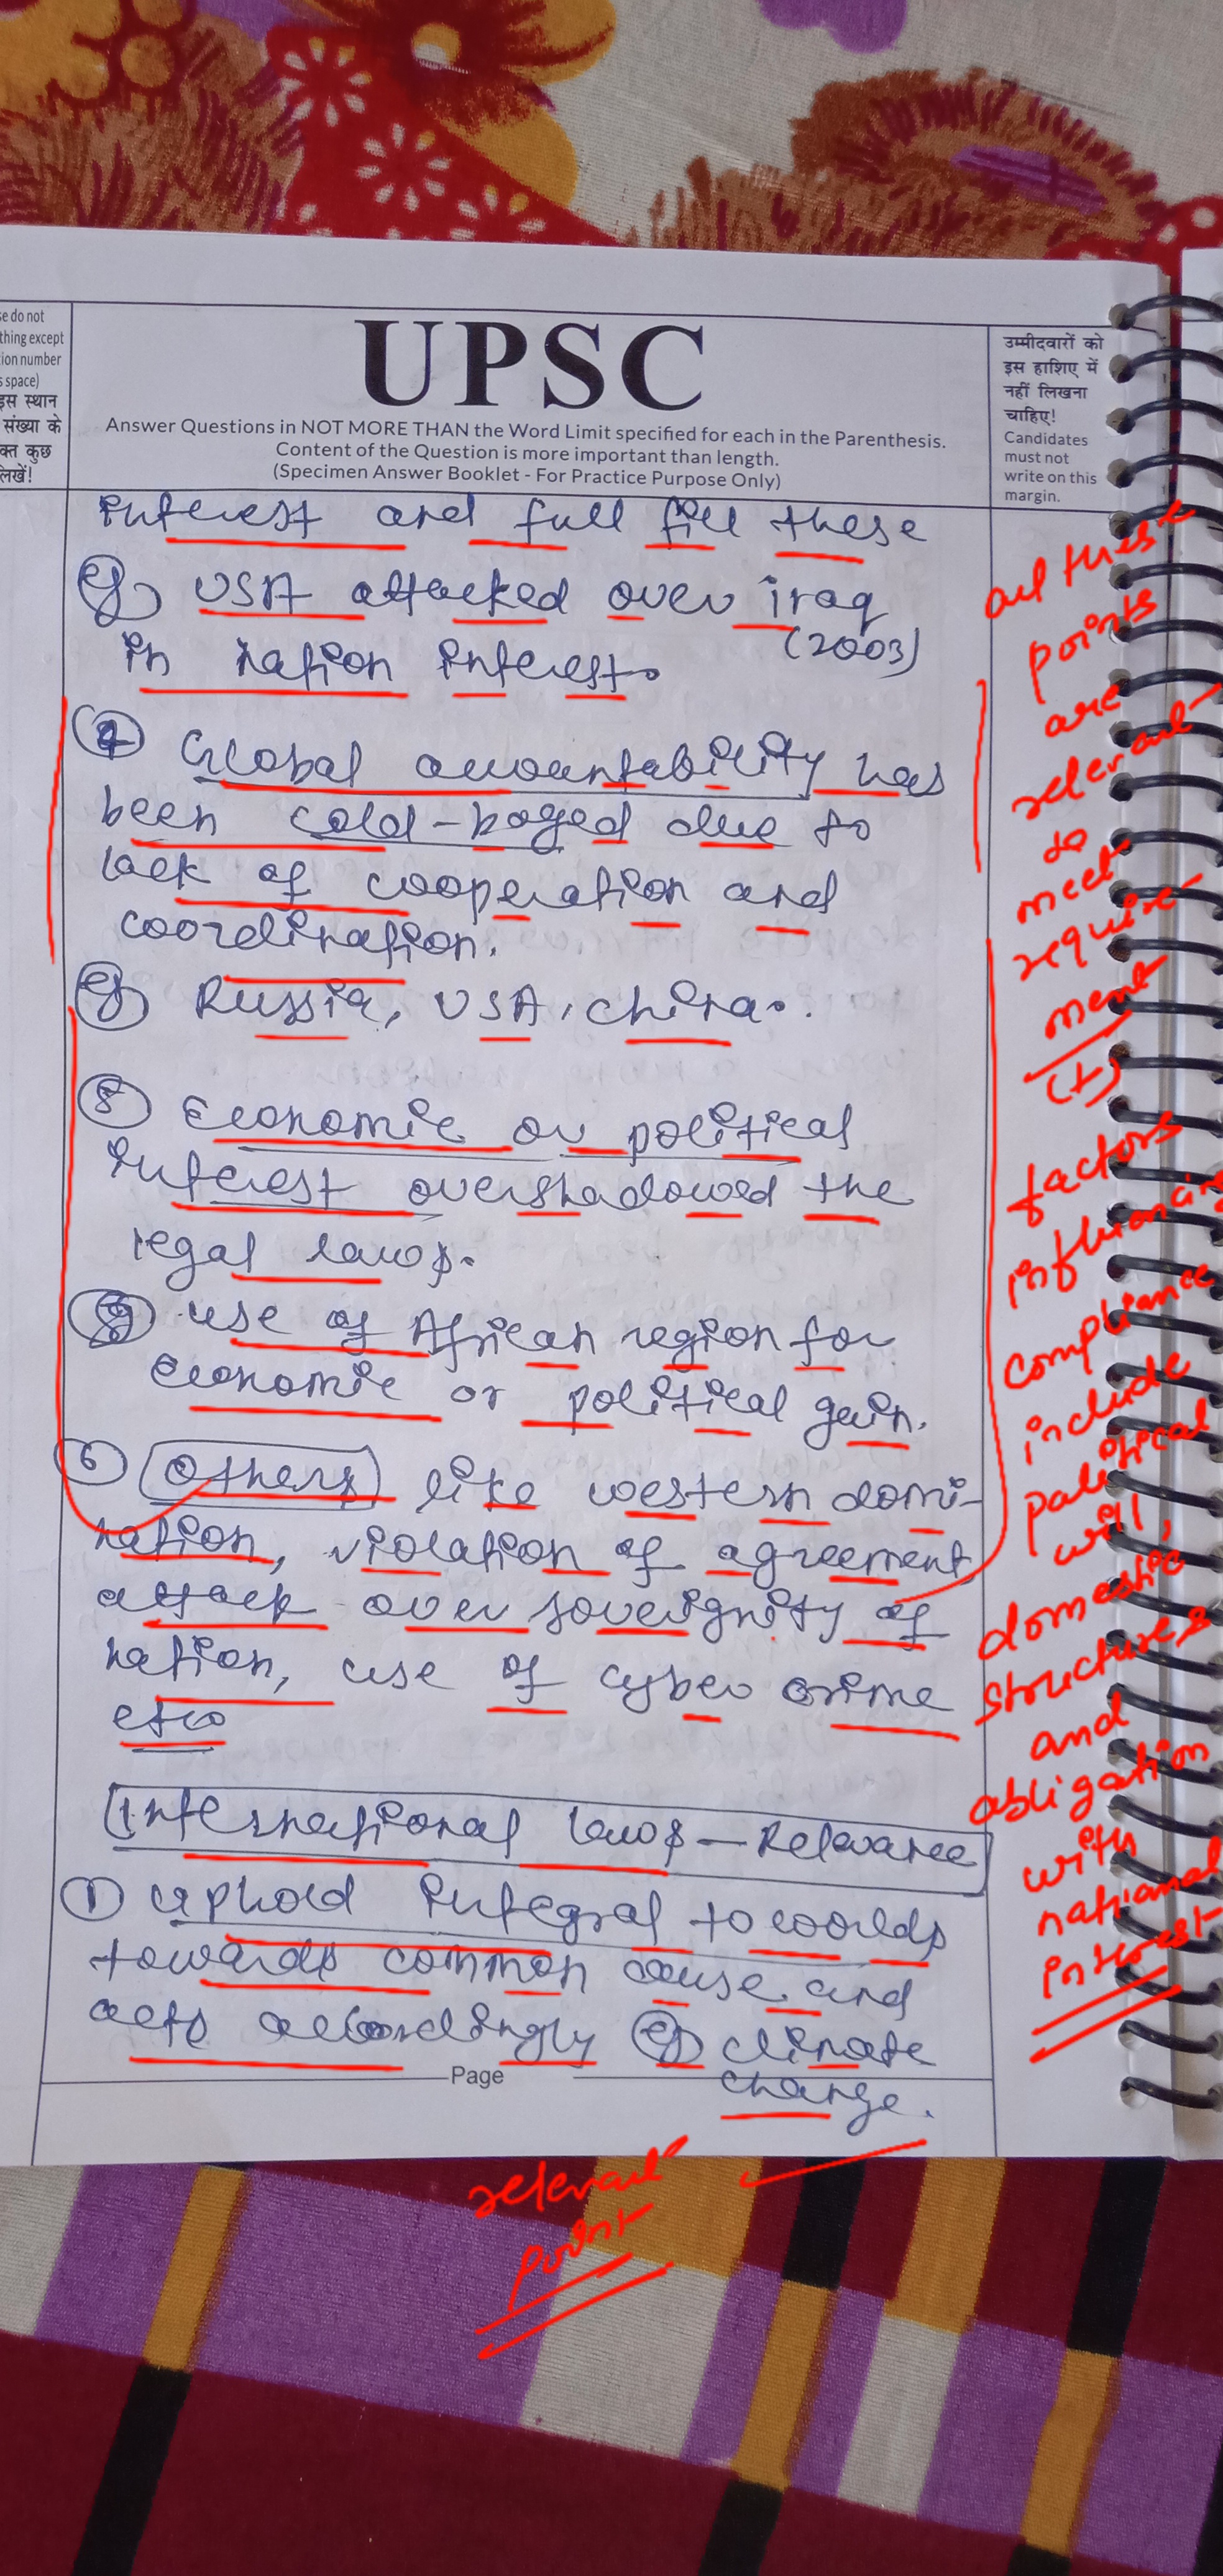 se do not
thing except
ion number
s space)
इस स्थान
संख्या के
क्त कुछ
लिखें!
UPSC
Answer Questions in NOT MORE THAN the Word Limit specified for each in the Parenthesis.
Content of the Question is more important than length.
(Specimen Answer Booklet - For Practice Purpose Only)
उम्मीदवारों को
इस हाशिए में
नहीं लिखना
चाहिए!
Candidates
must not
write on this
margin.
interest and full fill these
eg USA attacked over iraq
(2003)
in nation interest.
4 Global accountability has
been cold-boxed due to
lack of cooperation and
coordination.
eg Russia, USA, China.
5 Economic or political
interest overshadowed the
legal laws.
eg use of African region for
economic or political gain.
6 Others like western domi-
nation, violation of agreement
attack over soverignity of
nation, use of cyber crime
etc
International laws - Relevance
1 uphold integral to worlds
towards common cause and
acts accordingly eg climate
change.
Page
all these
points
are
relevant
to
meet
require-
ment
(+)
factors
influencing
compliance
include
political
will,
domestic
structures
and
obligation
with
national
interest
relevant
point